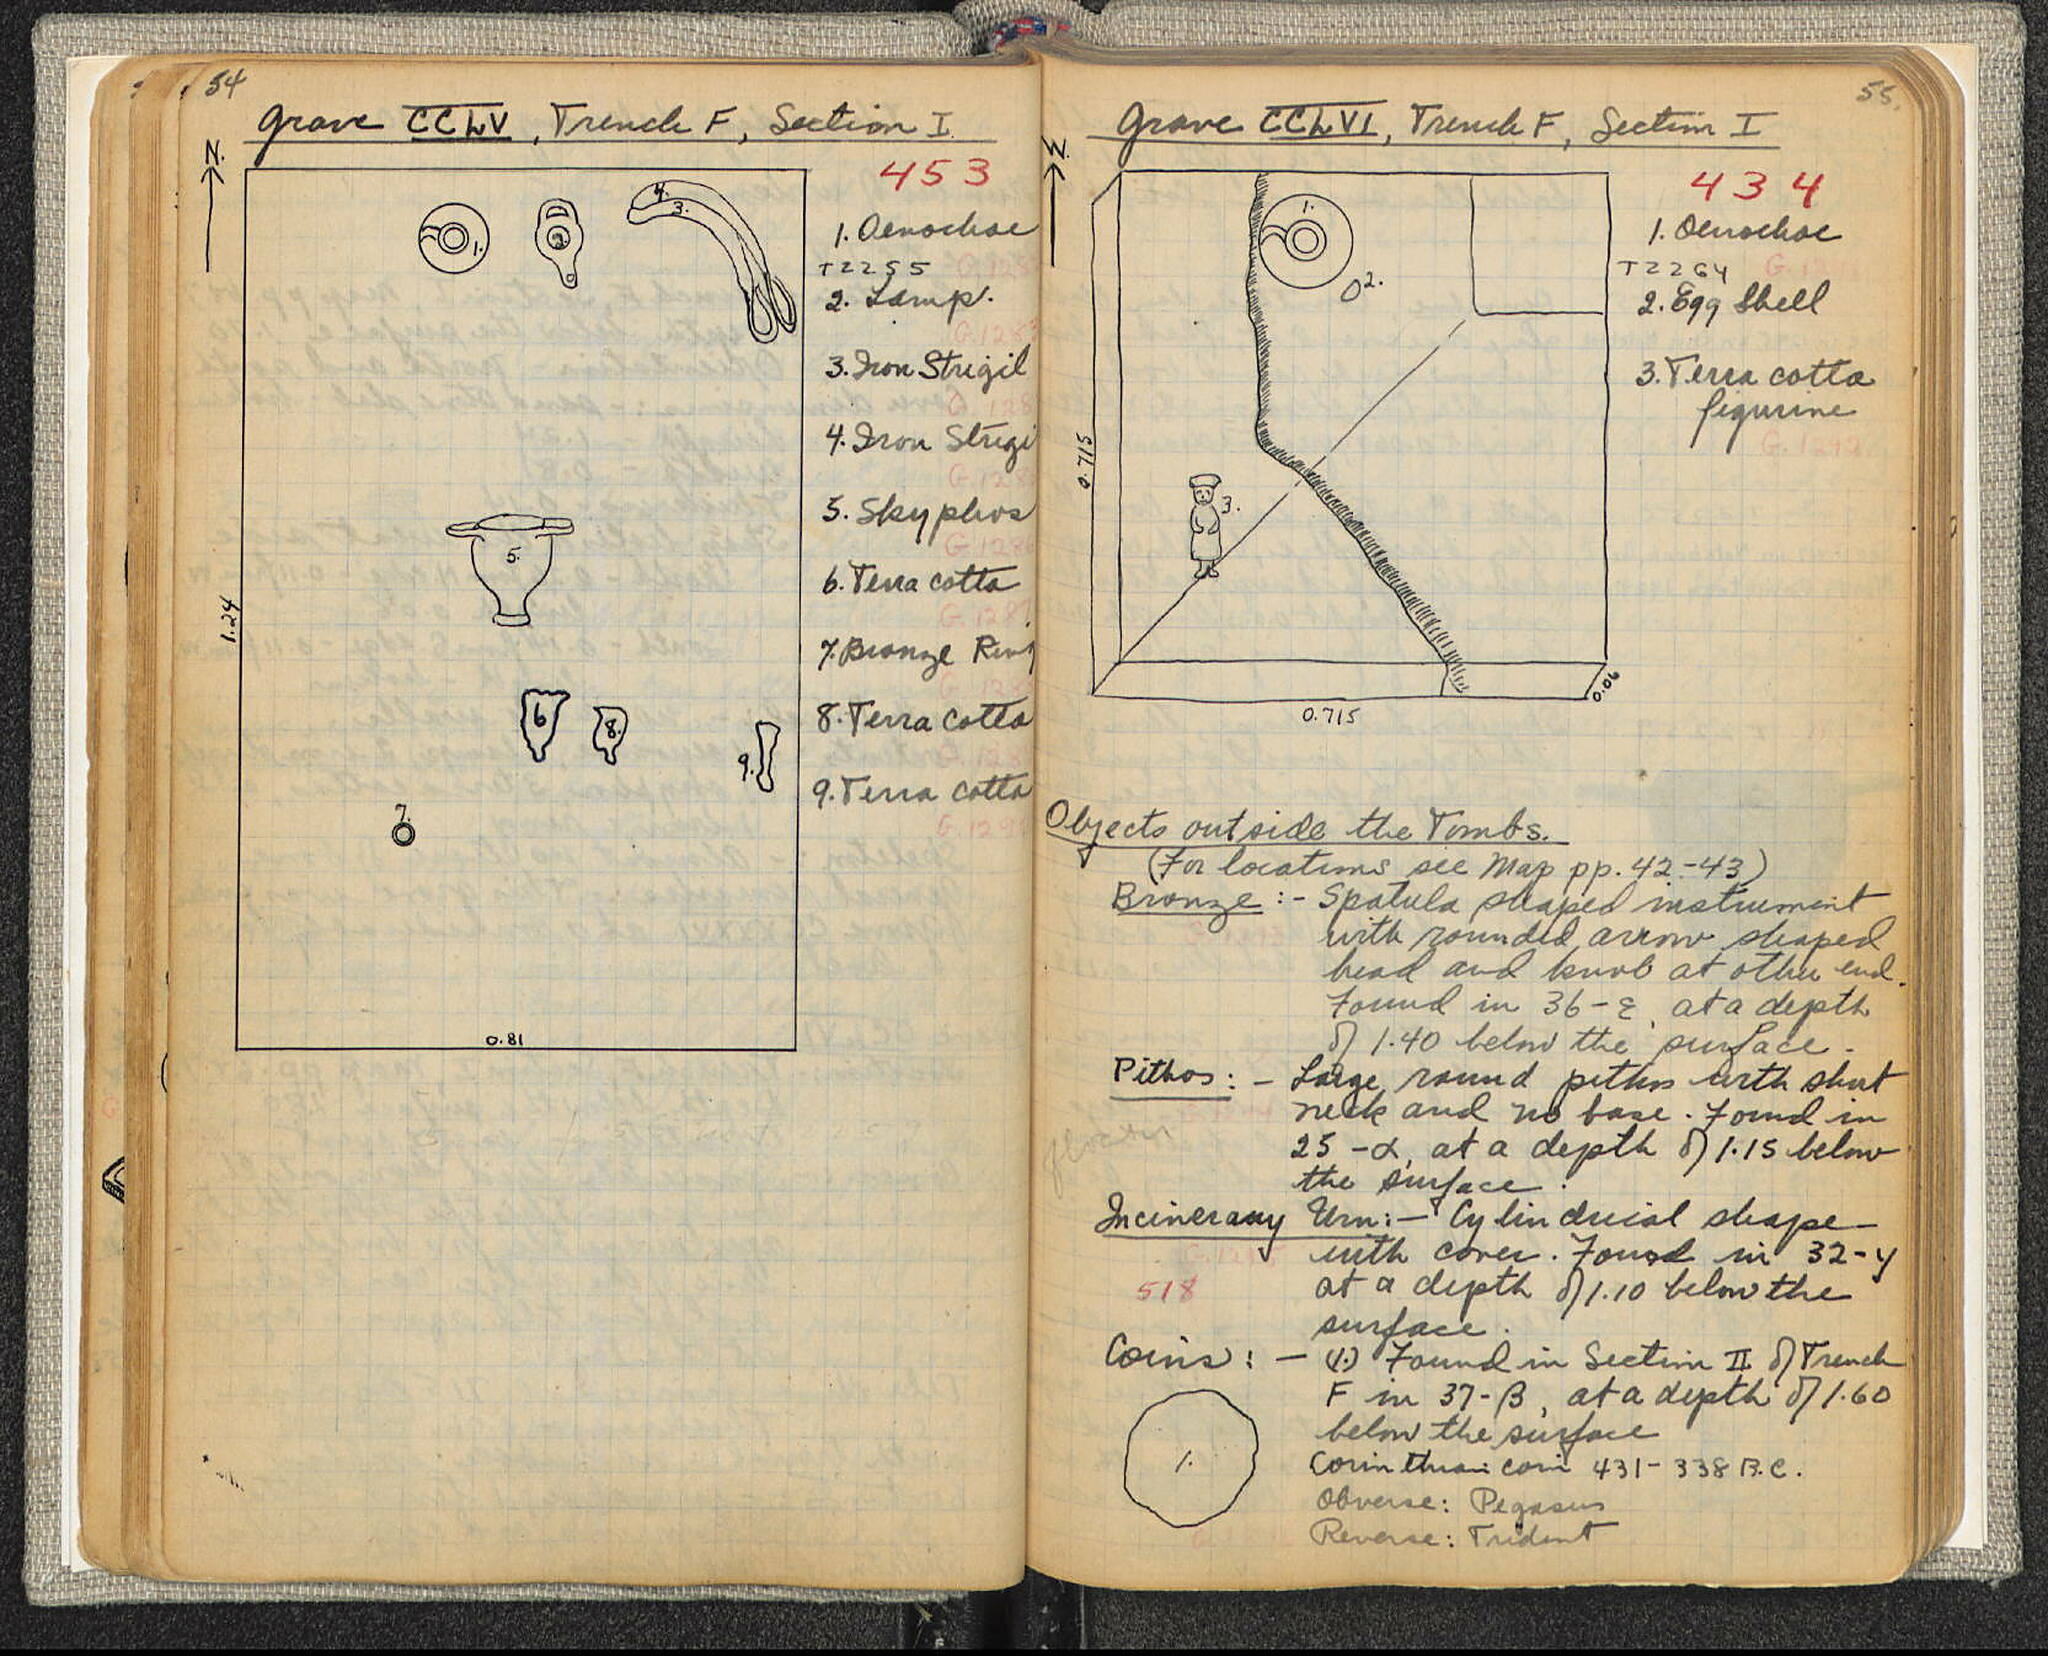 54
Grave CCLV, Trench F, Section I
N.
453
1. Oenochoe
T2255
2. Lamp.
3. Iron Strigil
4. Iron Strigi
5. Skyphos
G.1286
6. Terra cotta
G.1287
7. Bronze Ring
8. Terra cotta
9. Terra cotta
1.
2
4.
3.
5.
6
8.
9.
7.
1.24
0.81
55.
Grave CCLVI, Trench F, Section I
434
1. Oenochoe
T2264
2. Egg Shell
3. Terra cotta
figurine
G.1292
1.
2.
3.
0.715
0.715
0.06
Objects outside the Tombs.
(For locations see Map pp. 42-43)
Bronze :- Spatula shaped instrument
with rounded, arrow shaped
head and knob at other end.
Found in 36-ε, at a depth
of 1.40 below the surface.
Pithos: - Large, round pithos with short
neck and no base. Found in
25-α, at a depth of 1.15 below
the surface.
Incinerary Urn:- Cylindrical shape
with cover. Found in 32-γ
at a depth of 1.10 below the
518
surface.
Coins: - (1.) Found in Section II of Trench
F in 37-β, at a depth of 1.60
below the surface
Corinthian coin 431-338 B.C.
Obverse: Pegasus
Reverse: Trident
1.